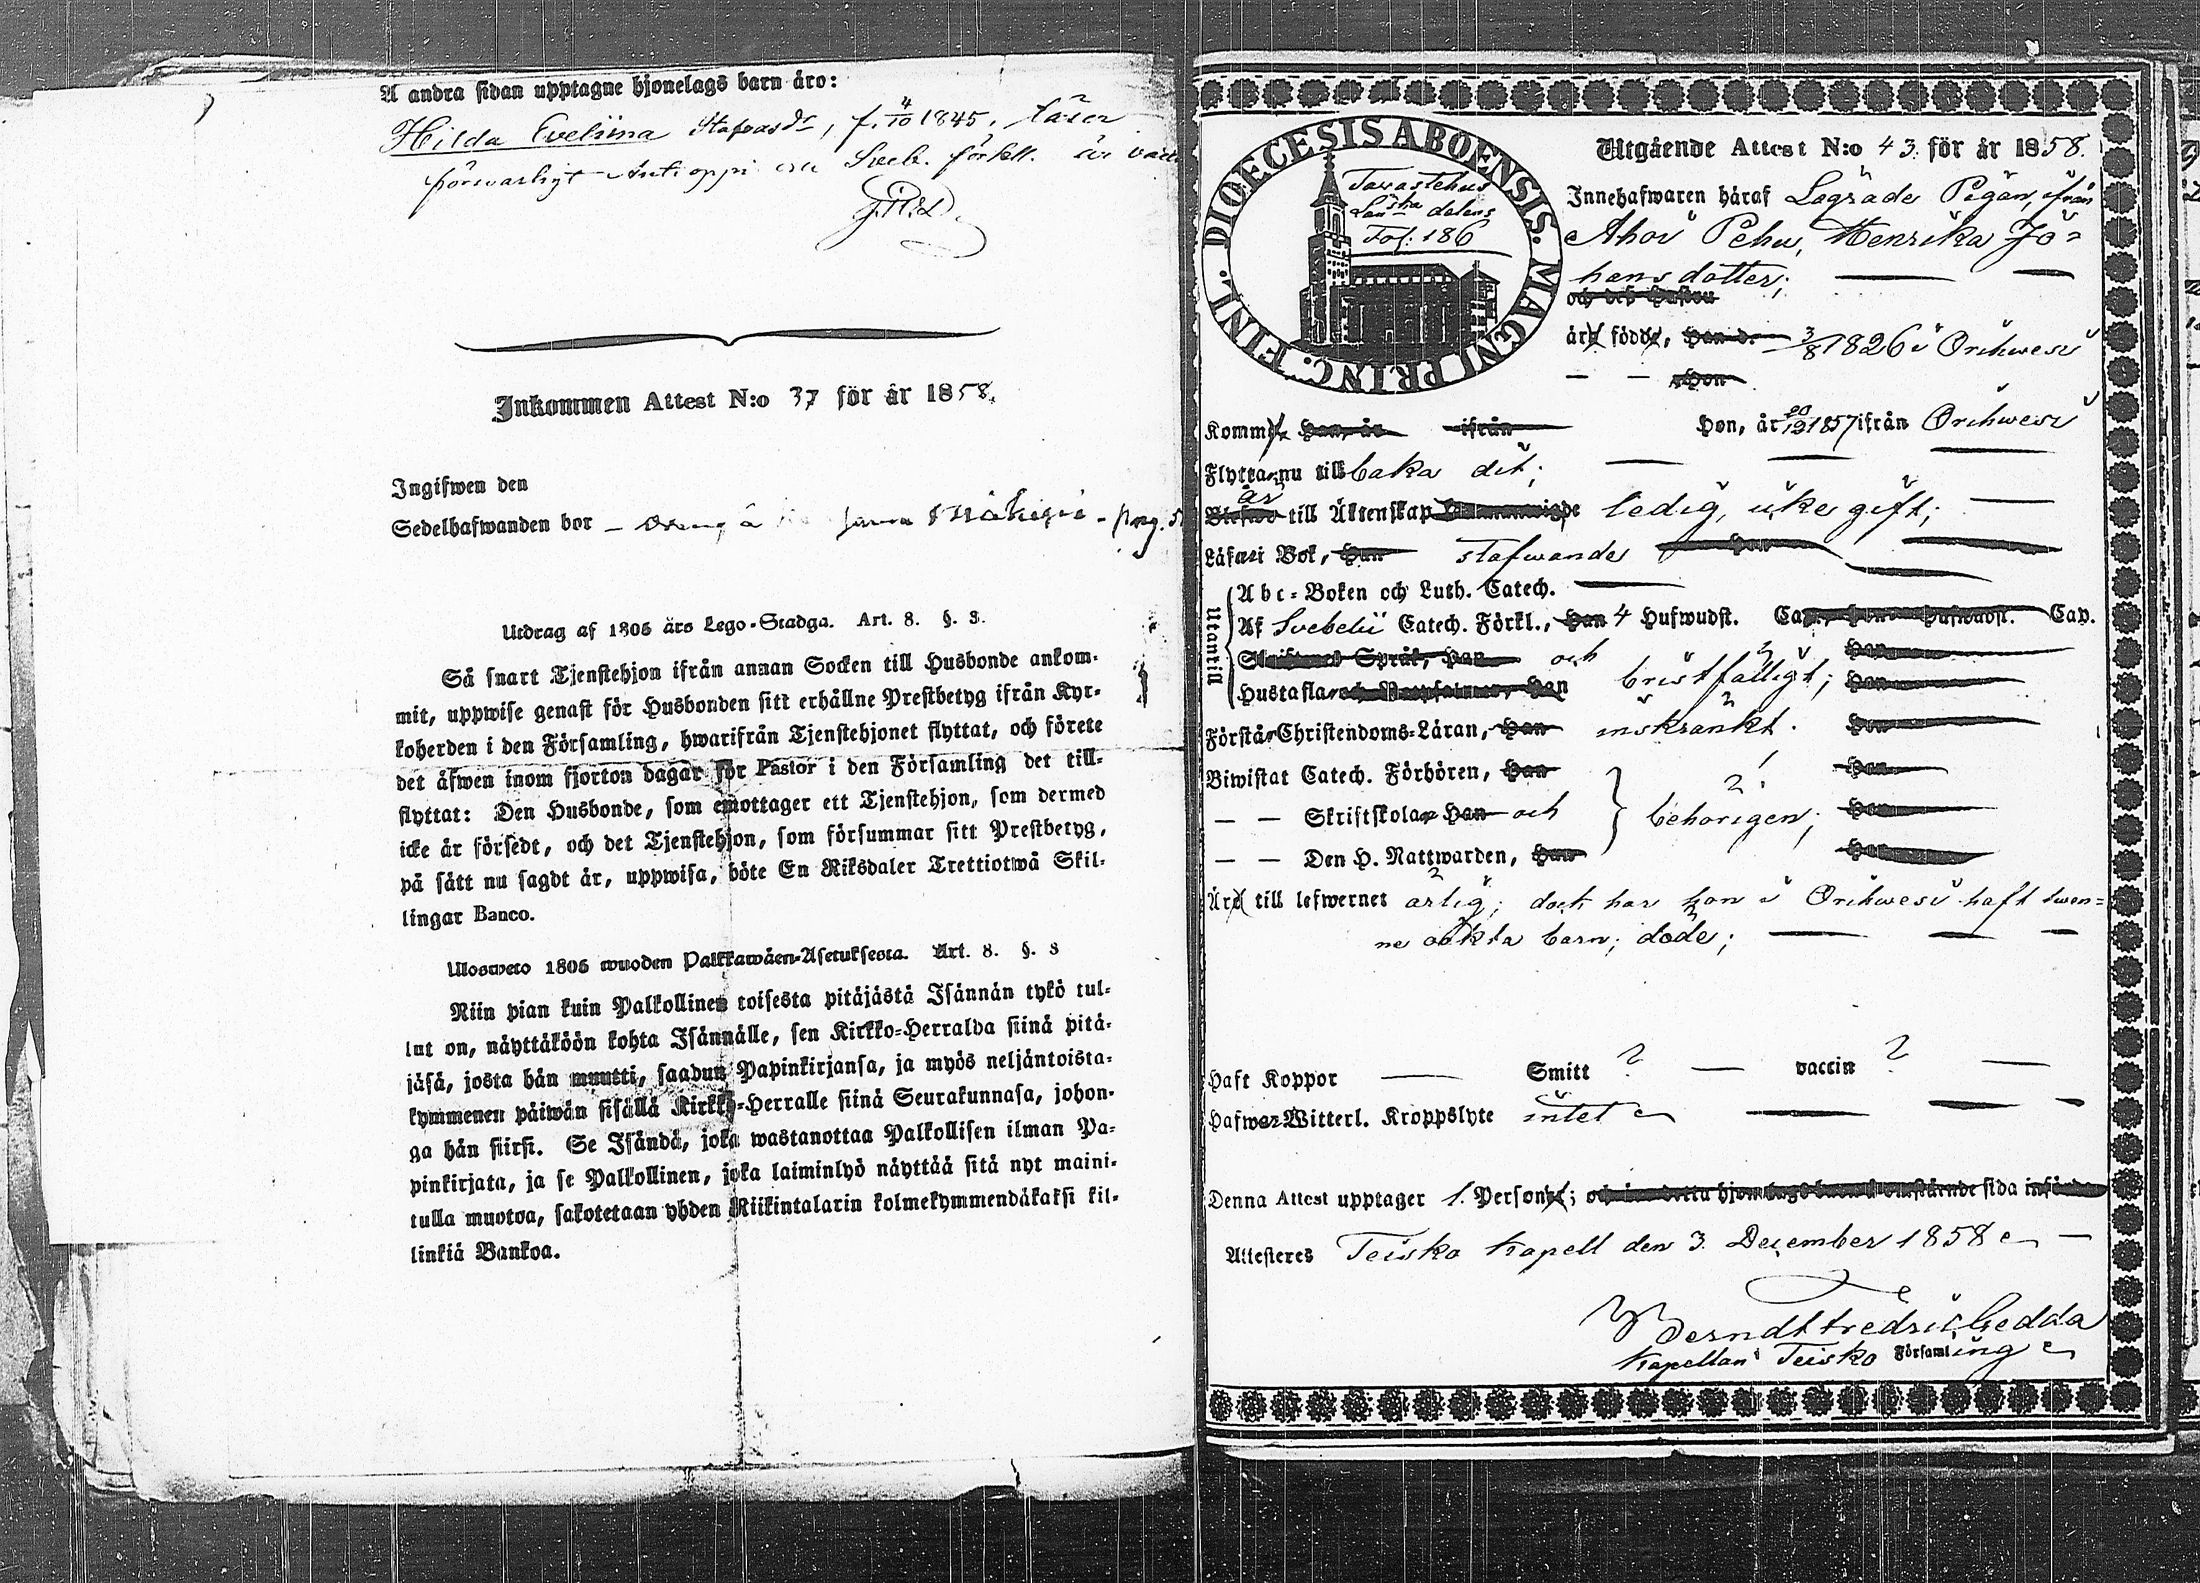 A andra sidan upptagne hjonelags barn äro:
Hilda Eveliina Stafvasdr, f. 4/10 1845. läser
försvarligt Sveb. förkl.
Inkommen Attest N:o 37 för år 1858.
Ingifwen den
Sedelhafwanden bor –
Utdrag af 1805 års Lego-Stadga. Art. 8. §. 3.
Så snart Tjenstehjon ifrån annan Socken till Husbonde ankom-
mit, uppwise genast för Husbonden sitt erhållne Prestbetyg ifrån Kyr-
koherden i den Församling, hwarifrån Tjenstehjonet flyttat, och förete
det äfwen inom fjorton dagar för Pastor i den Församling det till-
flyttat: Den Husbonde, som emottager ett Tjenstehjon, som dermed
icke är försedt, och det Tjenstehjon, som försummar sitt Prestbetyg,
på sätt nu sagdt är, uppwisa, böte En Riksdaler Trettiotwå Skil-
lingar Banco.
Ulosweto 1805 wuoden Palkkawäen-Asetuksesta. Art. 8. §. 3
Niin pian kuin Palkollinen toisesta pitäjästä Isännän tykö tul-
lut on, näyttäköön kohta Isännälle, sen Kirkko-Herralda siinä pitä-
jäsä, josta hän muutti, saadun Papinkirjansa, ja myös neljäntoista-
kymmenen päiwän sisällä Kirkko-Herralle siinä Seurakunnasa, johon-
ga hän siirsi. Se Isändä, joka wastanottaa Palkollisen ilman Pa-
pinkirjata, ja se Palkollinen, joka laiminlyö näyttää sitä nyt maini-
tulla muotoa, sakotetaan yhden Riikintalarin kolmekymmendäkaksi kil-
linkiä Bankoa.
DIOECESIS ABOENSIS. MAGNI PRINC. FINL.
Tavastehus
Länska delens
Fol: 186
Utgående Attest N:o 43. för år 1858.
Innehafwaren häraf Lagrade Pigan, ifrån
Ahoi Pehu, Henrika Jo=
hansdotter;
och des hustru
äre födde, Han d. 3/8 1826 i Orihwesi
– – Hon
Komme, Han, är ifrån Hon, är 20/12 1857 ifrån Orihwesi
Flytta nu till baka dit;
är till Äktenskap ledig, icke gift;
Läsa i Bok, Han stafwande Hon
Utantill
Abc-Boken och Luth. Catech.
Af Svebelii Catech. Förkl., Han 4 Hufwudst. Cap., Hon Hufwudst. Cap.
Skriftenes Språk, Han och Hon
Hustaflan bristfälligt; Hon
Förstår Christendoms-Läran, Han inskränkt. Hon
Biwistat Catech. Förhören, Han Hon
– – Skriftskolan Han och behörigen; Hon
– – Den H. Nattwarden, Han Hon
Äre till lefwernet ärlig; dock har hon i Orihwesi haft twen=
ne oäkta barn; döde;
Haft Koppor — Smitt ? — vaccin ? —
Hafwer Witterl. Kroppslyte intet
Denna Attest upptager 1. Person; sida
Attesteres Teisko Kapell den 3. December 1858
Berndt Fredric Gedda
Kapellan i Teisko Församling